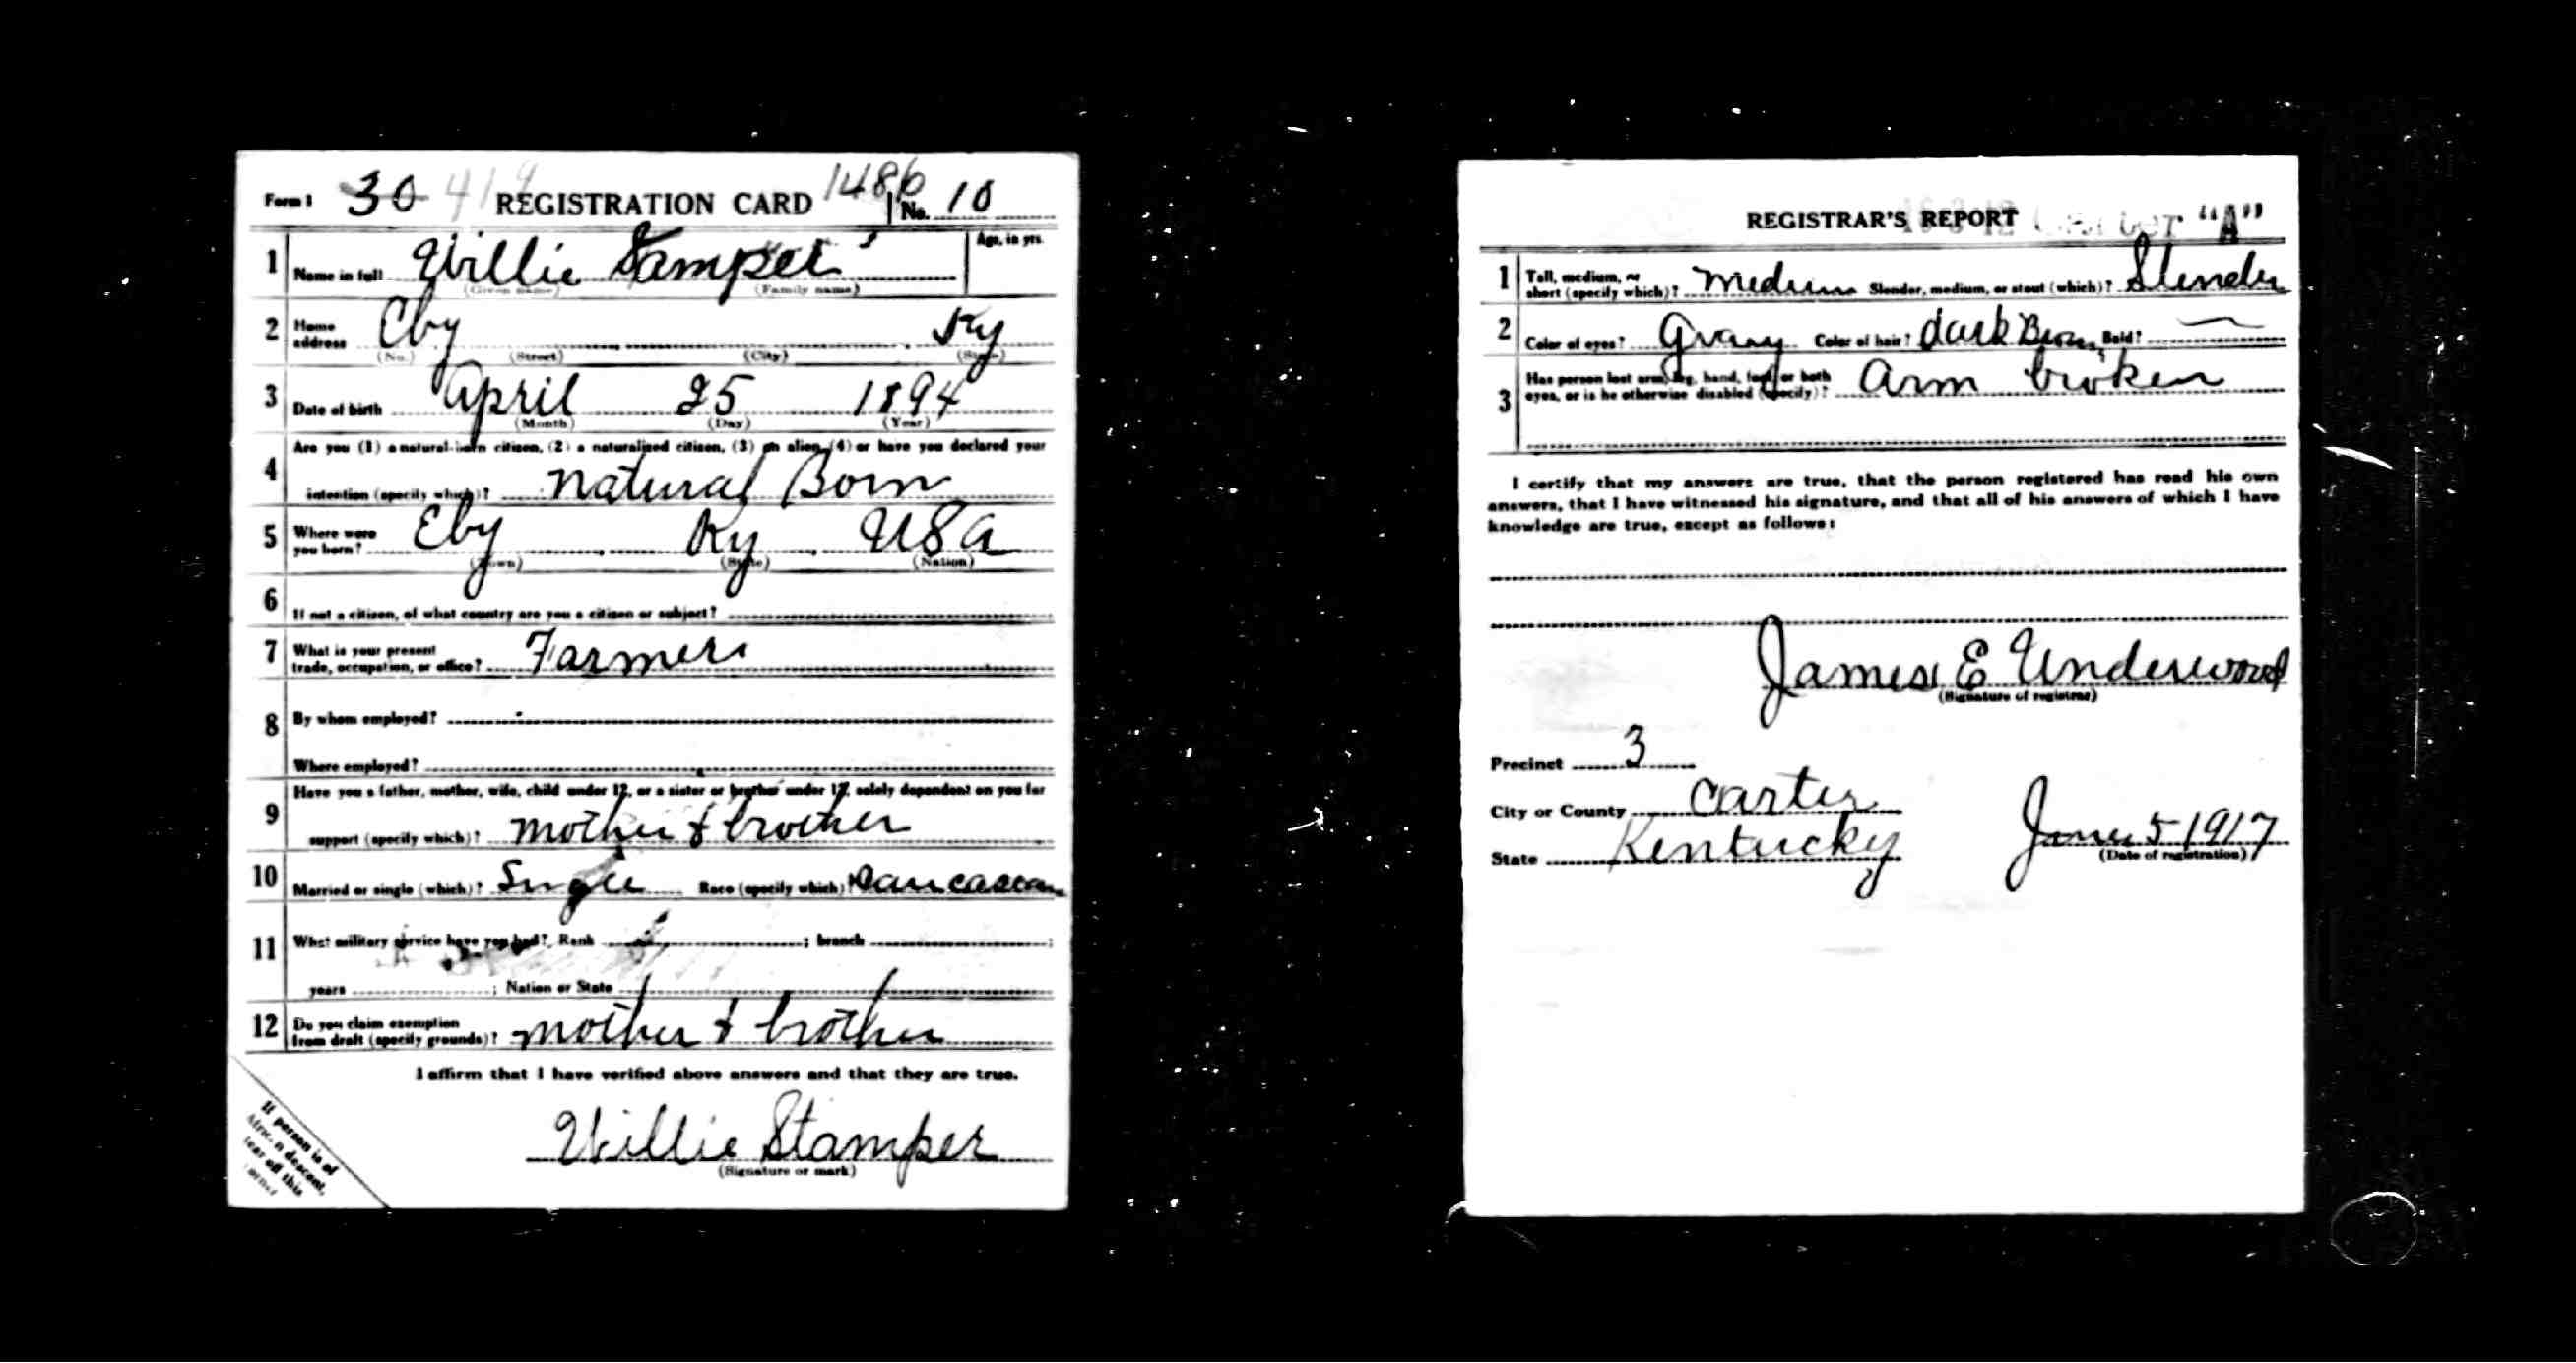 Form 1 30 419 REGISTRATION CARD 1486 No. 10
1 Name in full Willie Stamper Age, in yrs.
(Given name) (Family name)
2 Home address Eby Ky
(No.) (Street) (City) (State)
3 Date of birth April 25 1894
(Month) (Day) (Year)
4 Are you (1) a natural-born citizen, (2) a naturalized citizen, (3) an alien, (4) or have you declared your
intention (specify which)? natural Born
5 Where were you born? Eby Ky USA
(Town) (State) (Nation)
6 If not a citizen, of what country are you a citizen or subject?
7 What is your present trade, occupation, or office? Farmer
8 By whom employed?
Where employed?
9 Have you a father, mother, wife, child under 12, or a sister or brother under 12, solely dependent on you for
support (specify which)? mother & brother
10 Married or single (which)? Single Race (specify which)? Caucasean
11 What military service have you had? Rank ; branch ;
years ; Nation or State
12 Do you claim exemption from draft (specify grounds)? mother & brother
I affirm that I have verified above answers and that they are true.
Willie Stamper
(Signature or mark)
If person is of
descent,
tear off this
corner
REGISTRAR'S REPORT "A"
1 Tall, medium, or short (specify which)? medium Slender, medium, or stout (which)? Slender
2 Color of eyes? Gray Color of hair? dark Brown Bald? —
3 Has person lost arm, leg, hand, foot, or both
eyes, or is he otherwise disabled (specify)? Arm broken
I certify that my answers are true, that the person registered has read his own
answers, that I have witnessed his signature, and that all of his answers of which I have
knowledge are true, except as follows:
James E Underwood
(Signature of registrar)
Precinct 3
City or County Carter
State Kentucky June 5 1917
(Date of registration)